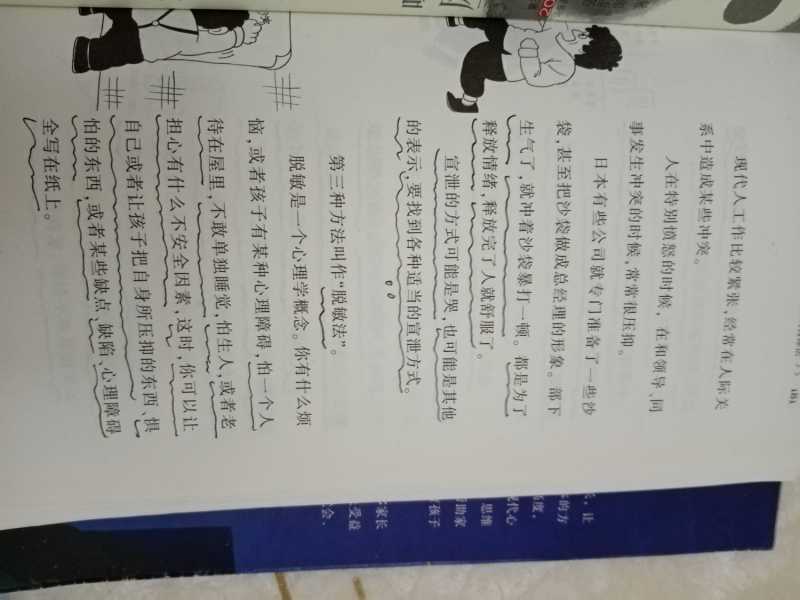 181
现代人工作比较紧张,经常在人际关
系中造成某些冲突。
人在特别愤怒的时候,在和领导、同
事发生冲突的时候,常常很压抑。
日本有些公司就专门准备了一些沙
袋,甚至把沙袋做成总经理的形象。部下
生气了,就冲着沙袋暴打一顿。都是为了
释放情绪,释放完了人就舒服了。
宣泄的方式可能是哭,也可能是其他
的表示,要找到各种适当的宣泄方式。
第三种方法叫作“脱敏法”。
脱敏是一个心理学概念。你有什么烦
恼,或者孩子有某种心理障碍,怕一个人
待在屋里,不敢单独睡觉,怕生人,或者老
担心有什么不安全因素,这时,你可以让
自己或者让孩子把自身所压抑的东西、惧
怕的东西,或者某些缺点、缺陷、心理障碍
全写在纸上。
,让
的方
度,
代心
思维
助家
孩子
家长
受益
会、